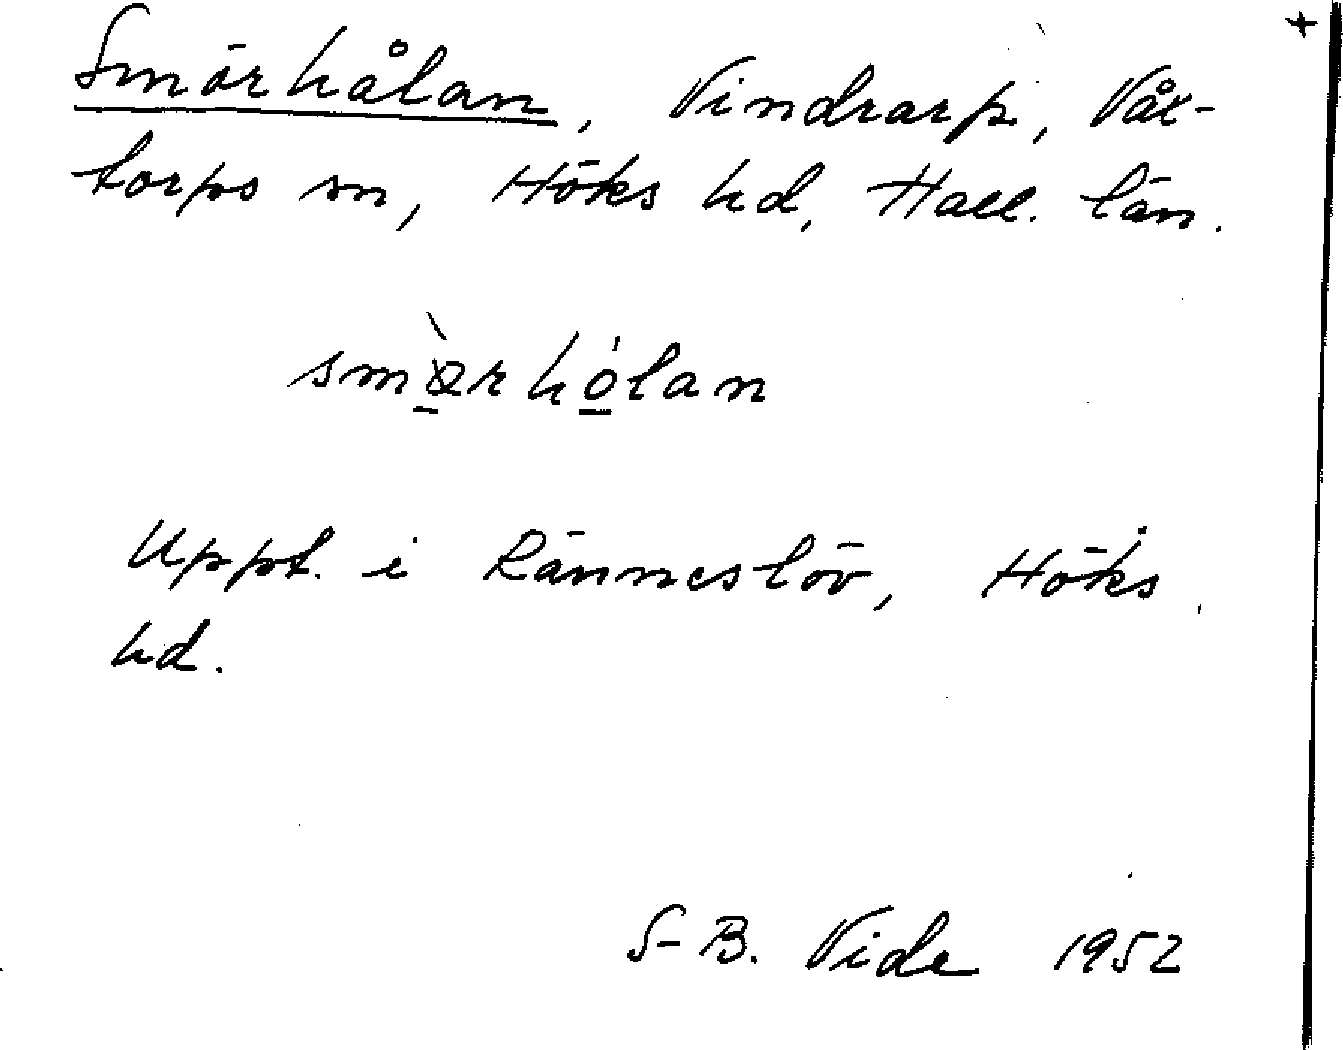 +
Smörhålan, Vindrarp, Våx-
torps sn, Höks hd, Hall. län.
smø̱̀rhó̱lan
Uppt. i Ränneslöv, Höks
hd.
S-B. Vide 1952